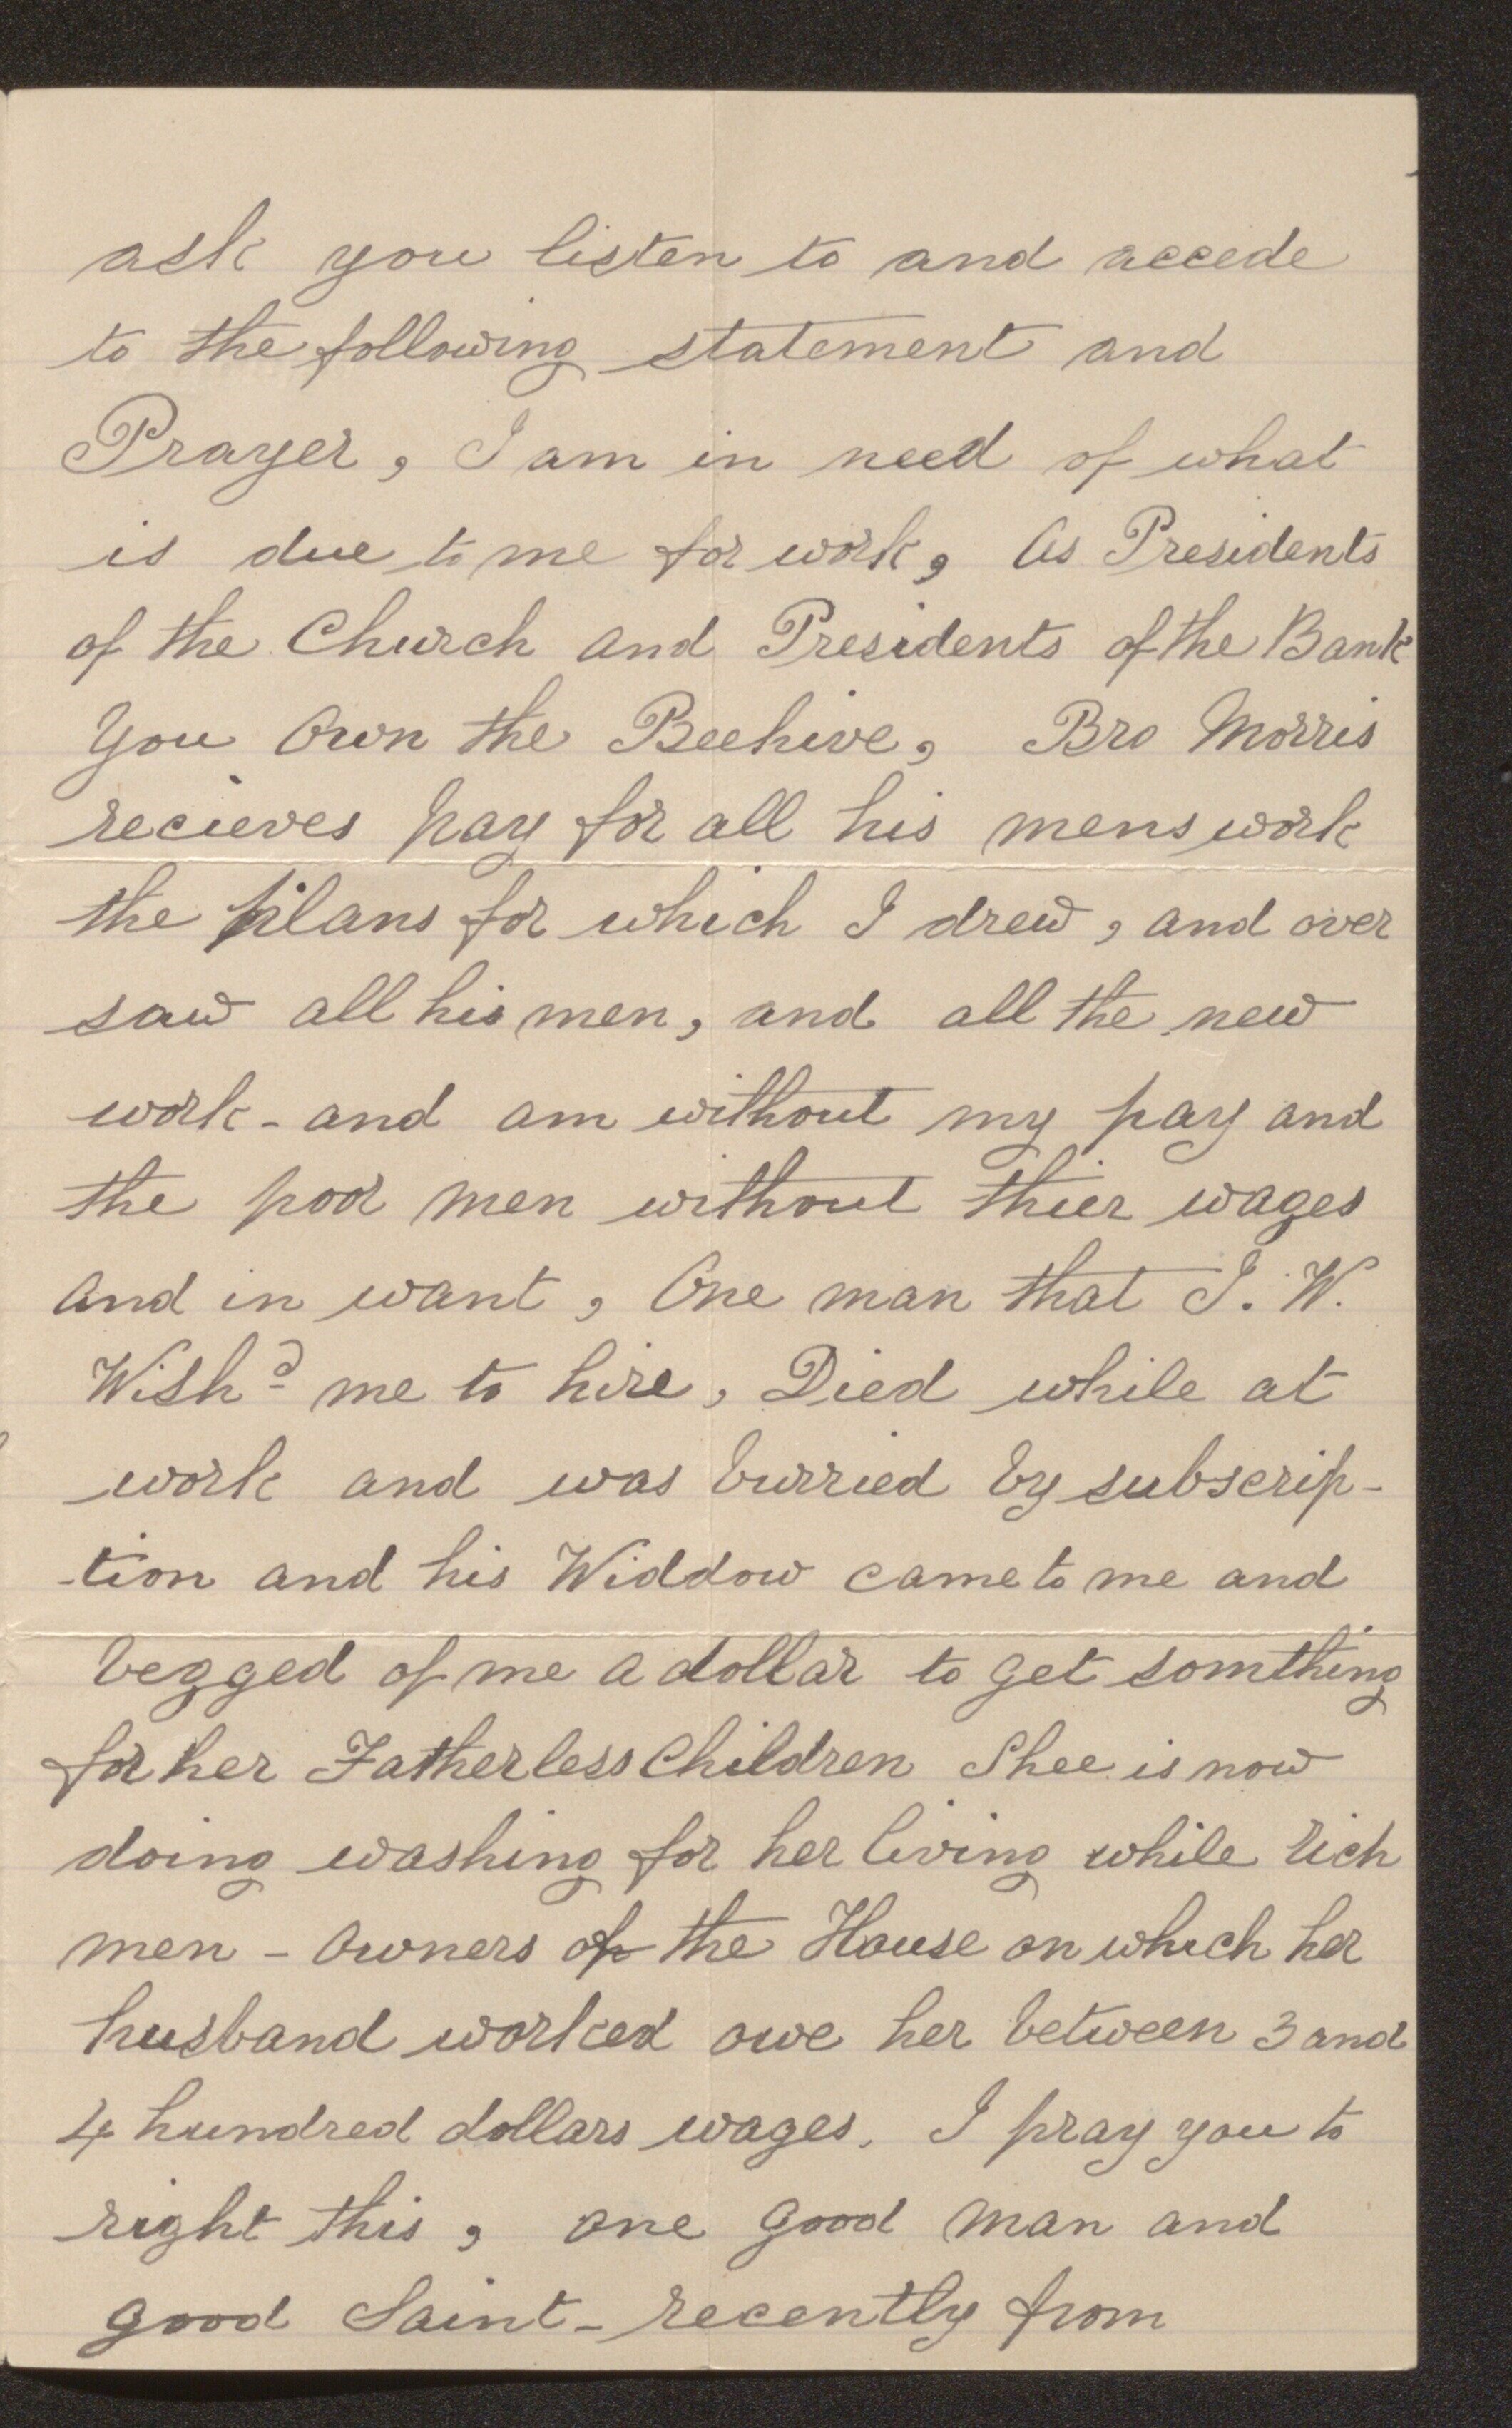 ask you listen to and accede
to the following statement and
Prayer, I am in need of what
is due to me for work, As Presidents
of the Church and Presidents of the Bank
You Own the Beehive, Bro Morris
recieves pay for all his mens work
the plans for which I drew, and over
saw all his men, and all the new
work - and am without my pay and
the poor men without thier wages
and in want, One man that J. W.
Wishd me to hire, Died while at
work and was burried by subscrip-
-tion and his Widdow came to me and
begged of me a dollar to get somthing
for her Fatherless Children Shee is now
doing washing for her living while rich
men - owners of the House on which her
husband worked owe her between 3 and
4 hundred dollars wages. I pray you to
right this, one good man and
good Saint - recently from